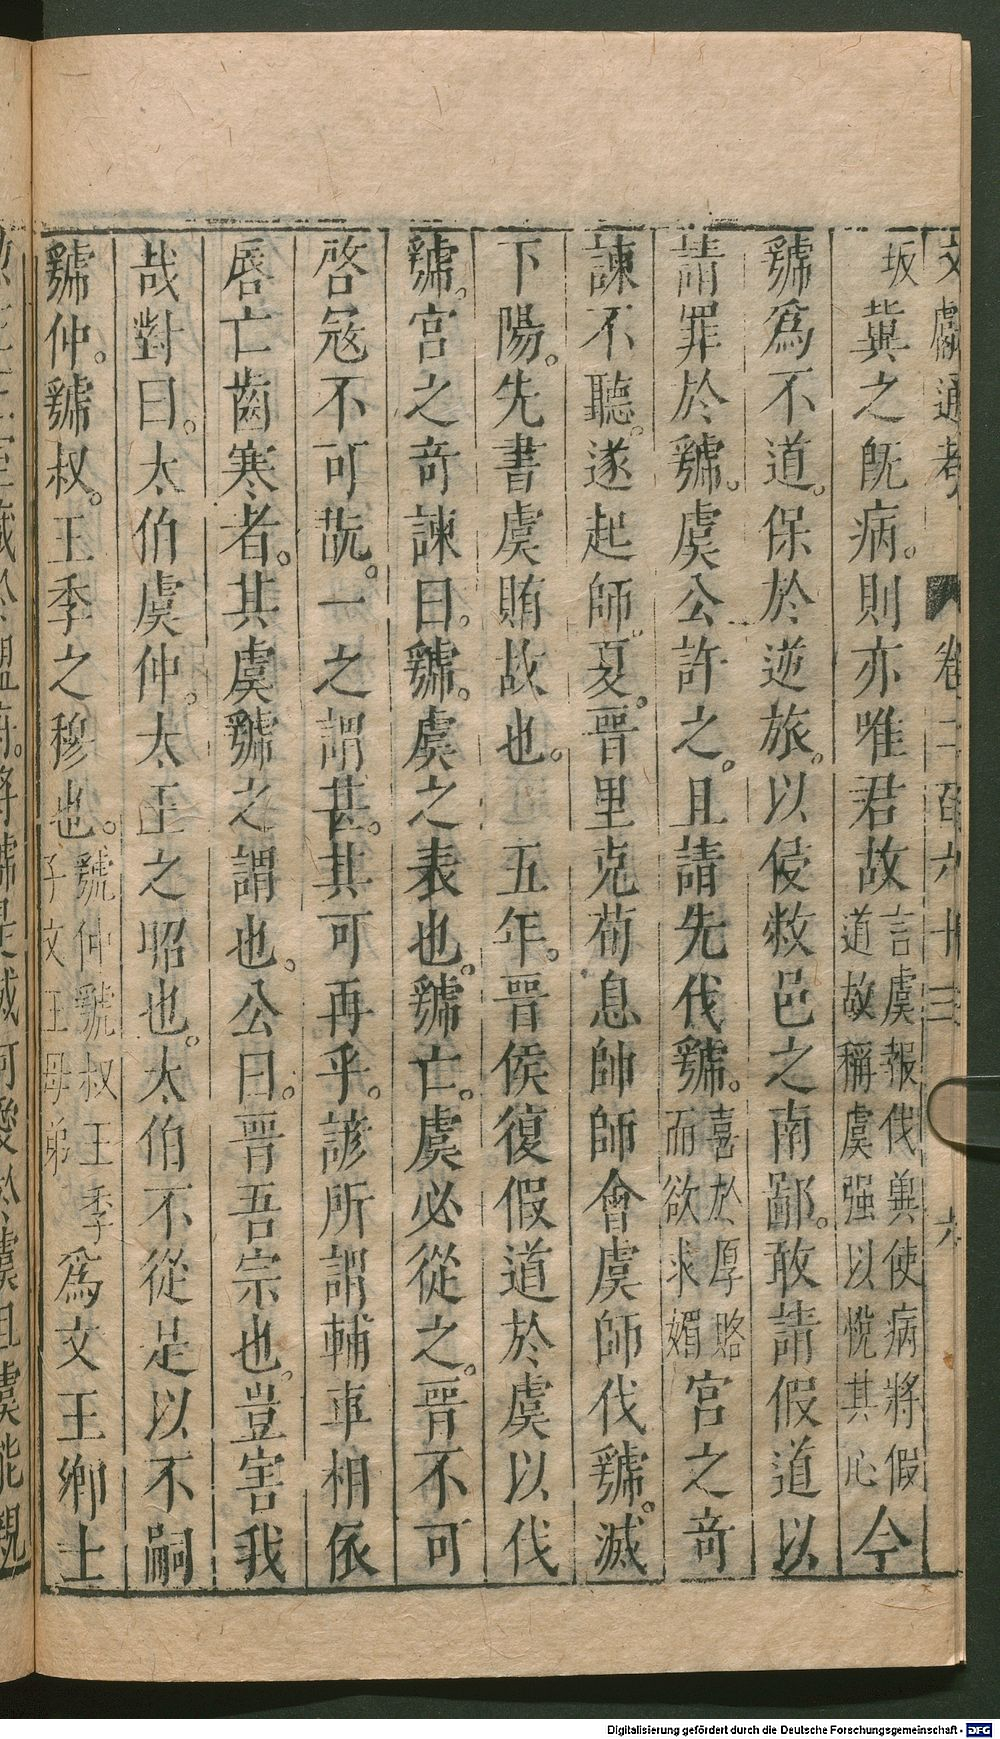 文獻通考 卷二百六十三 六
坂 冀之旣病。則亦唯君故 言虞報伐冀使病將假道故稱虞强以悅其心 今
虢爲不道。保於逆旅。以侵敝邑之南鄙。敢請假道以
請罪於虢。虞公許之。且請先伐虢。喜於厚賂而欲求媚 宮之奇
諫不聽。遂起師。夏。晉里克荀息帥師會虞師伐虢。滅
下陽。先書虞賄故也。 五年。晉侯復假道於虞以伐
虢。宮之奇諫曰。虢。虞之表也。虢亡。虞必從之。晉不可
啓寇不可翫。一之謂甚。其可再乎。諺所謂輔車相依
唇亡齒寒者。其虞虢之謂也。公曰。晉吾宗也。豈害我
哉對曰。太伯虞仲。太王之昭也。太伯不從是以不嗣
虢仲。虢叔。王季之穆也。虢仲虢叔王季子文王母弟 爲文王卿士
Digitalisierung gefördert durch die Deutsche Forschungsgemeinschaft - DFG